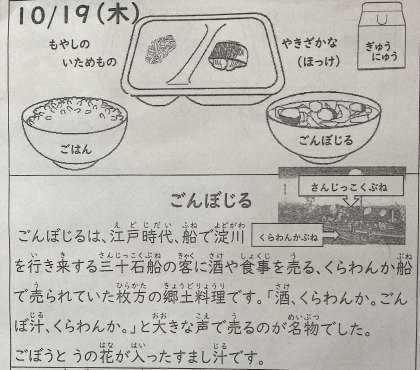 10/19(木)
もやしの
いためもの
やきざかな
(ほっけ)
ぎゅう
にゅう
ごはん
ごんぼじる
ごんぼじる
さんじっこくぶね
くらわんかぶね
ごんぼじるは、江戸時代、船で淀川
を行き来する三十石船の客に酒や食事を売る、くらわんか船
で売られていた枚方の郷土料理です。「酒、くらわんか。ごん
ぼ汁、くらわんか。」と大きな声で売るのが名物でした。
ごぼうと うの花が入ったすまし汁です。